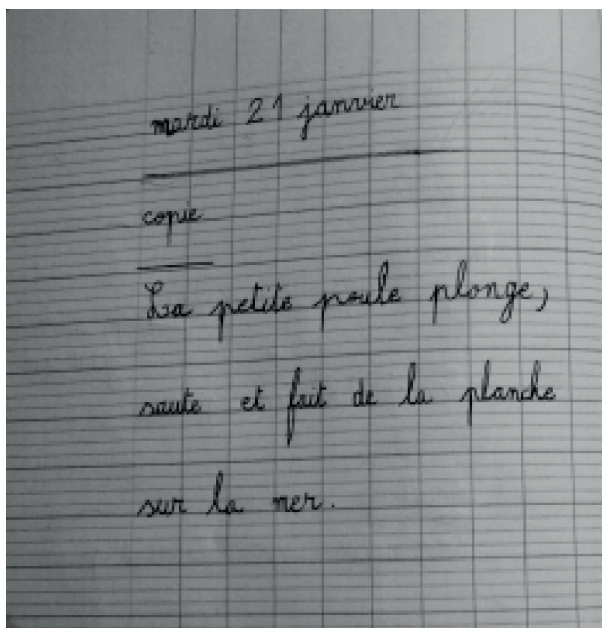 mardi 21 janvier
copie
La petite poule plonge,
saute et fait de la planche
sur la mer.